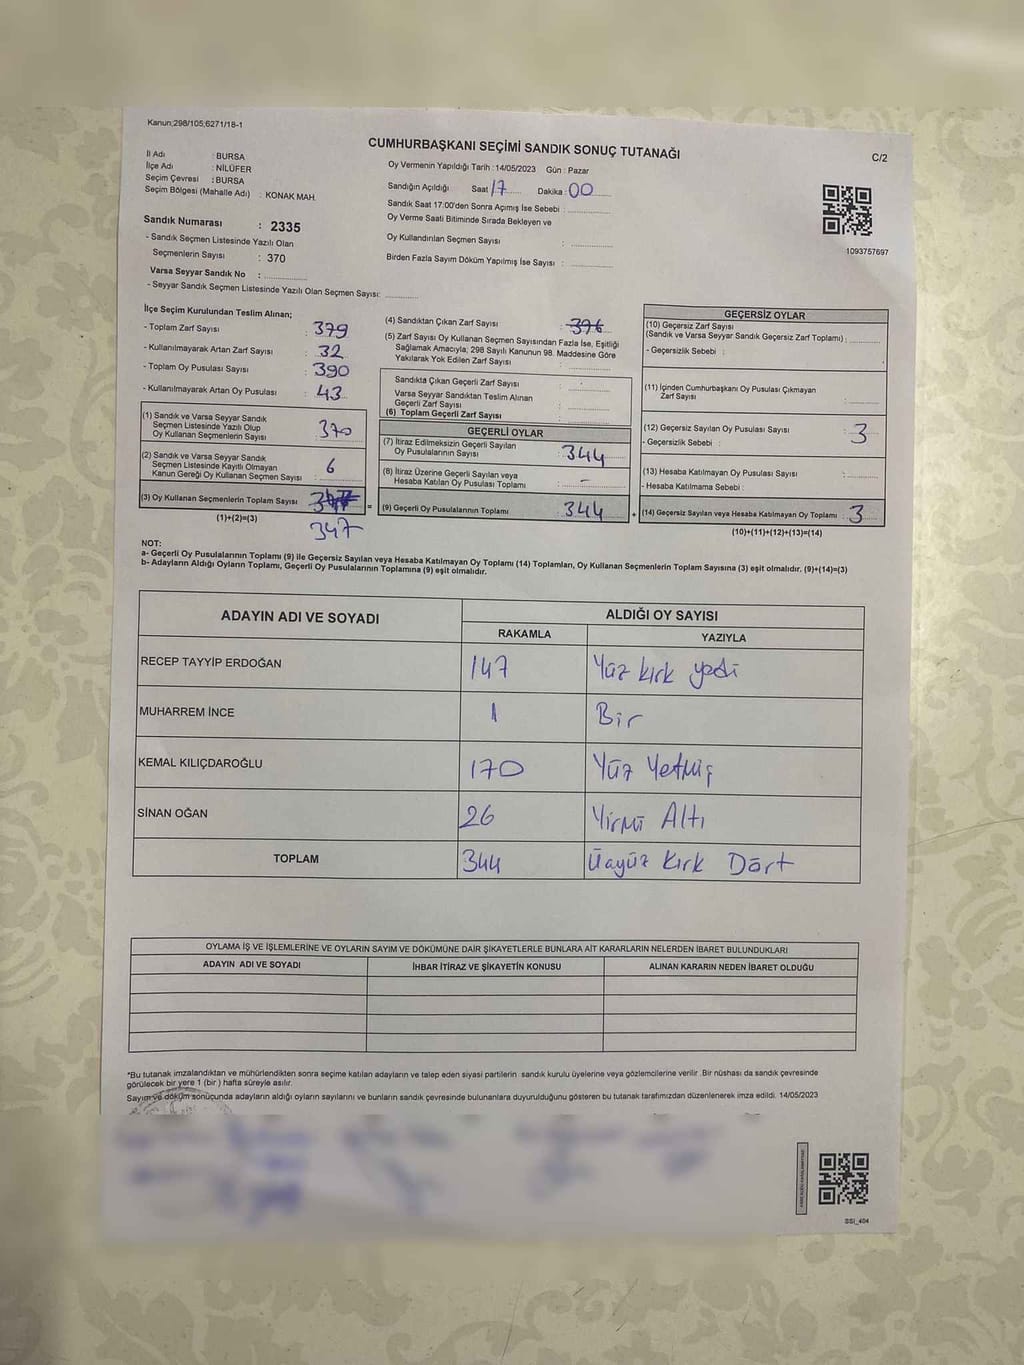 Kanun;298/105;6271/18-1
CUMHURBAŞKANI SEÇİMİ SANDIK SONUÇ TUTANAĞI
C/2
İl Adı : BURSA
İlçe Adı : NİLÜFER
Seçim Çevresi : BURSA
Seçim Bölgesi (Mahalle Adı) : KONAK MAH.
Sandık Numarası : 2335
- Sandık Seçmen Listesinde Yazılı Olan
Seçmenlerin Sayısı : 370
Varsa Seyyar Sandık No :
- Seyyar Sandık Seçmen Listesinde Yazılı Olan Seçmen Sayısı:
Oy Vermenin Yapıldığı Tarih : 14/05/2023 Gün : Pazar
Sandığın Açıldığı Saat 17 Dakika : 00
Sandık Saat 17:00'den Sonra Açımış İse Sebebi :
Oy Verme Saati Bitiminde Sırada Bekleyen ve
Oy Kullandırılan Seçmen Sayısı :
Birden Fazla Sayım Döküm Yapılmış İse Sayısı :
1093757697
İlçe Seçim Kurulundan Teslim Alınan;
- Toplam Zarf Sayısı : 379
- Kullanılmayarak Artan Zarf Sayısı : 32
- Toplam Oy Pusulası Sayısı : 390
- Kullanılmayarak Artan Oy Pusulası : 43
(1) Sandık ve Varsa Seyyar Sandık
Seçmen Listesinde Yazılı Olup
Oy Kullanan Seçmenlerin Sayısı : 370
(2) Sandık ve Varsa Seyyar Sandık
Seçmen Listesinde Kayıtlı Olmayan
Kanun Gereği Oy Kullanan Seçmen Sayısı : 6
(3) Oy Kullanan Seçmenlerin Toplam Sayısı
(1)+(2)=(3)
347
(4) Sandıktan Çıkan Zarf Sayısı : 376
(5) Zarf Sayısı Oy Kullanan Seçmen Sayısından Fazla İse, Eşitliği
Sağlamak Amacıyla; 298 Sayılı Kanunun 98. Maddesine Göre
Yakılarak Yok Edilen Zarf Sayısı :
Sandıkta Çıkan Geçerli Zarf Sayısı :
Varsa Seyyar Sandıktan Teslim Alınan
Geçerli Zarf Sayısı :
(6) Toplam Geçerli Zarf Sayısı
GEÇERLİ OYLAR
(7) İtiraz Edilmeksizin Geçerli Sayılan
Oy Pusulalarının Sayısı : 344
(8) İtiraz Üzerine Geçerli Sayılan veya
Hesaba Katılan Oy Pusulası Toplamı : -
= (9) Geçerli Oy Pusulalarının Toplamı : 344 +
GEÇERSİZ OYLAR
(10) Geçersiz Zarf Sayısı
(Sandık ve Varsa Seyyar Sandık Geçersiz Zarf Toplamı) :
- Geçersizlik Sebebi :
(11) İçinden Cumhurbaşkanı Oy Pusulası Çıkmayan
Zarf Sayısı :
(12) Geçersiz Sayılan Oy Pusulası Sayısı : 3
- Geçersizlik Sebebi :
(13) Hesaba Katılmayan Oy Pusulası Sayısı :
- Hesaba Katılmama Sebebi :
(14) Geçersiz Sayılan veya Hesaba Katılmayan Oy Toplamı : 3
(10)+(11)+(12)+(13)=(14)
NOT:
a- Geçerli Oy Pusulalarının Toplamı (9) ile Geçersiz Sayılan veya Hesaba Katılmayan Oy Toplamı (14) Toplamları, Oy Kullanan Seçmenlerin Toplam Sayısına (3) eşit olmalıdır. (9)+(14)=(3)
b- Adayların Aldığı Oyların Toplamı, Geçerli Oy Pusulalarının Toplamına (9) eşit olmalıdır.
ADAYIN ADI VE SOYADI ALDIĞI OY SAYISI
RAKAMLA YAZIYLA
RECEP TAYYİP ERDOĞAN 147 Yüz kırk yedi
MUHARREM İNCE 1 Bir
KEMAL KILIÇDAROĞLU 170 Yüz Yetmiş
SİNAN OĞAN 26 Yirmi Altı
TOPLAM 344 Üçyüz Kırk Dört
OYLAMA İŞ VE İŞLEMLERİNE VE OYLARIN SAYIM VE DÖKÜMÜNE DAİR ŞİKAYETLERLE BUNLARA AİT KARARLARIN NELERDEN İBARET BULUNDUKLARI
ADAYIN ADI VE SOYADI İHBAR İTİRAZ VE ŞİKAYETİN KONUSU ALINAN KARARIN NEDEN İBARET OLDUĞU
*Bu tutanak imzalandıktan ve mühürlendikten sonra seçime katılan adayların ve talep eden siyasi partilerin sandık kurulu üyelerine veya gözlemcilerine verilir .Bir nüshası da sandık çevresinde
görülecek bir yere 1 (bir ) hafta süreyle asılır.
Sayım ve döküm sonucunda adayların aldığı oyların sayılarını ve bunların sandık çevresinde bulunanlara duyurulduğunu gösteren bu tutanak tarafımızdan düzenlenerek imza edildi. 14/05/2023
SSI_404